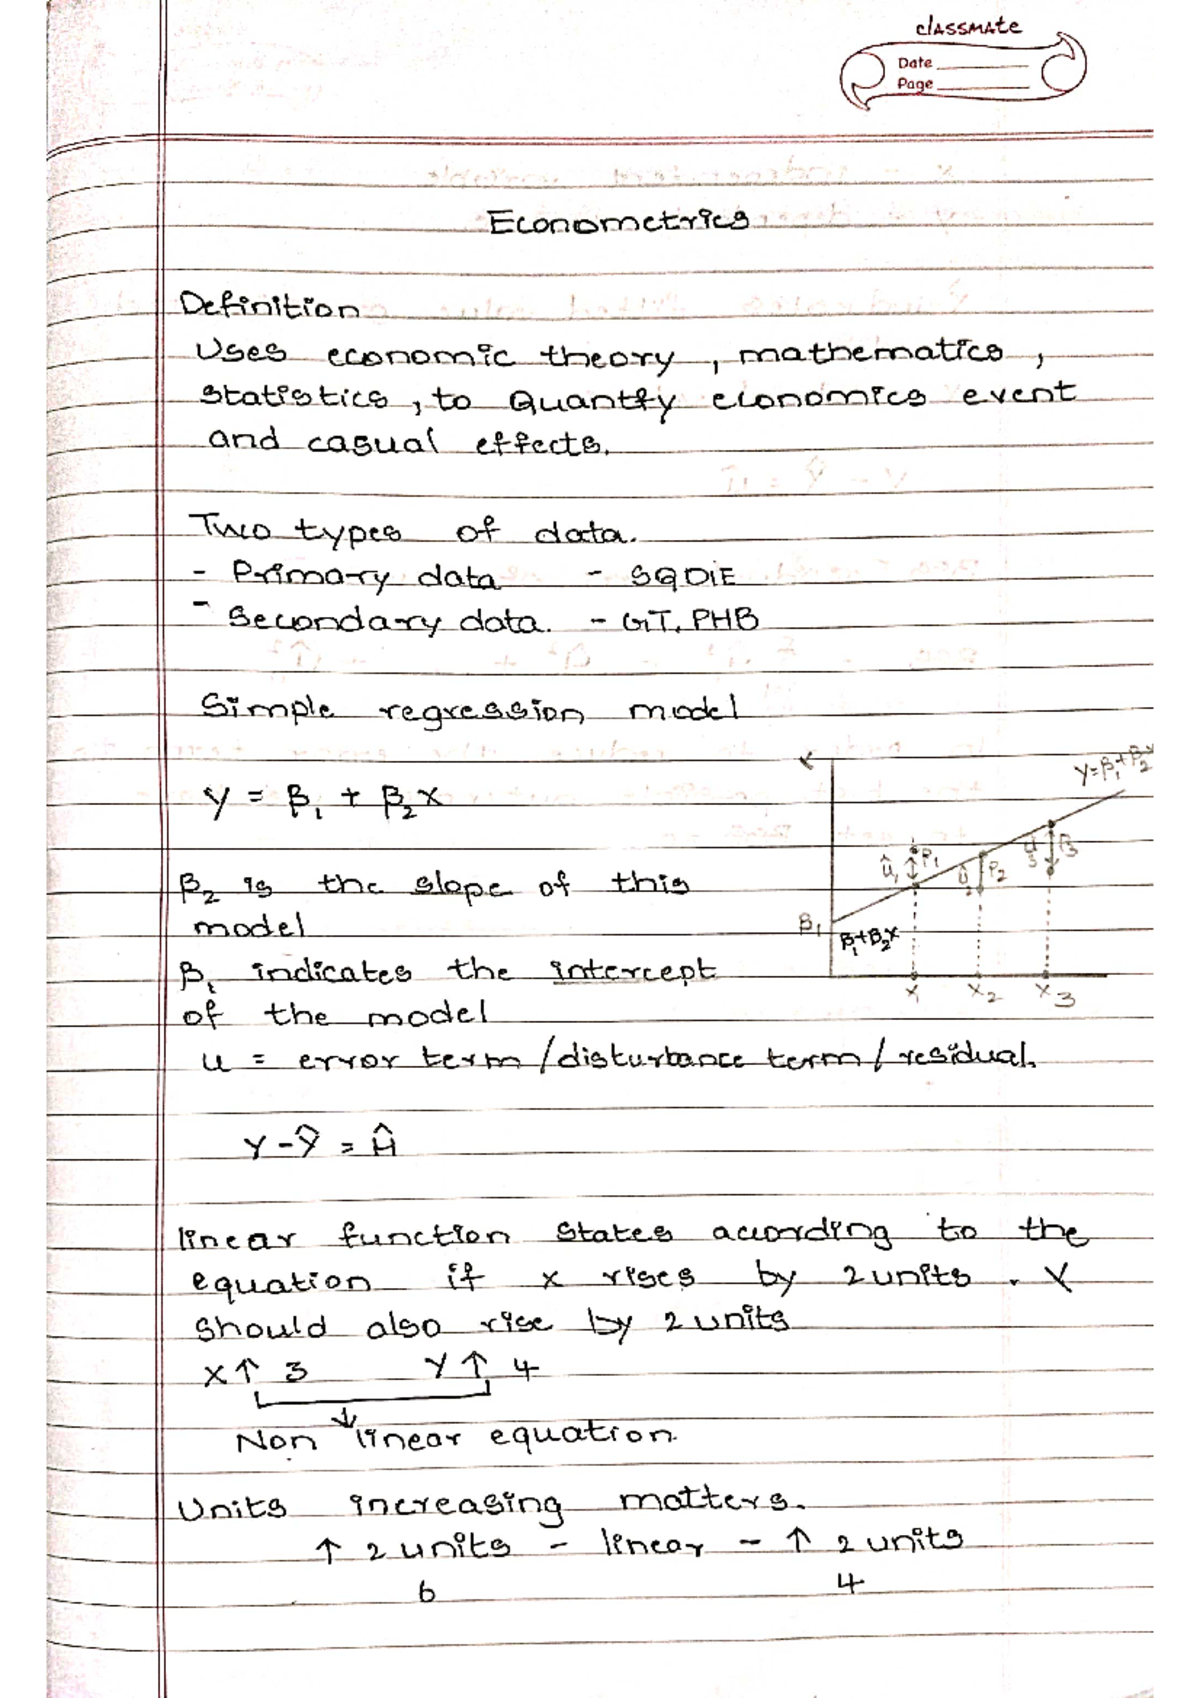 classmate
Date
Page
Econometrics
Definition
Uses economic theory, mathematics,
statistics, to Quantfy economics event
and casual effects.
Two types of data.
- Primary data - SQDiE
- Secondary data. - GT, PHB
Simple regression model
Y = β₁ + β₂X
Y=β₁+β₂X
û₁ P₁
û₂ P₂
û₃ P₃
β₁
β₁+β₂X
X₁ X₂ X₃
β₂ is the slope of this
model
β₁ indicates the intercept
of the model
u = error term/disturbance term/residual.
Y-Ŷ = û
linear function states according to the
equation if x rises by 2 units. Y
should also rise by 2 units
X↑ 3 Y↑ 4
Non linear equation.
Units increasing matters.
↑ 2 units - linear - ↑ 2 units
6 4